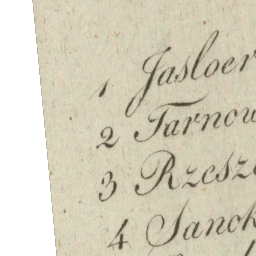 1 Jasloer
2 Tarnow
3 Rzesz
4 Sanok